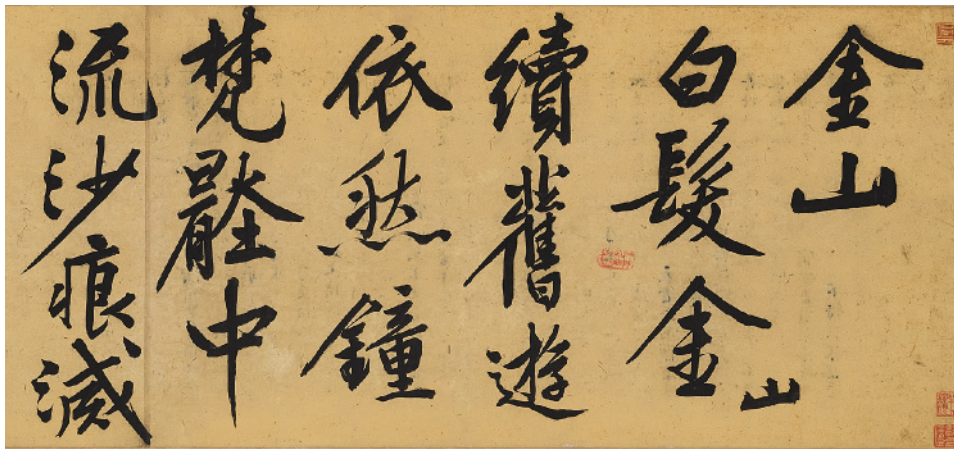 金山
白髮金山
續舊遊
依然鐘
梵壓中
流沙痕滅